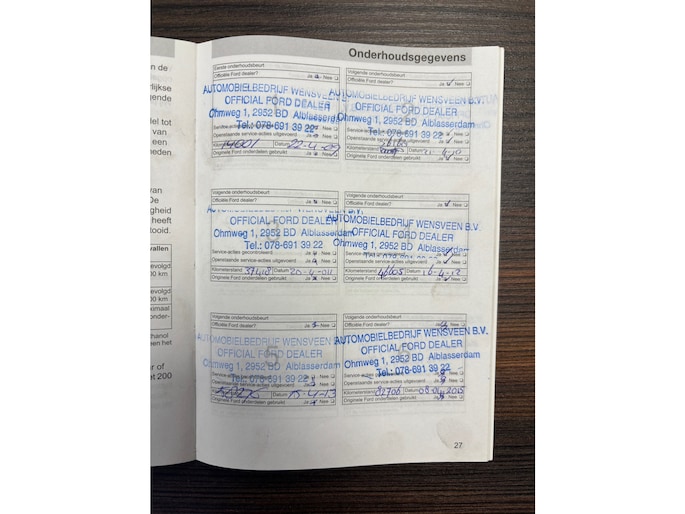 n de
lijkse
gende
tel tot
van
een
heden
van
De
igheid
heeft
tooid.
vallen
evolgd
00 km
evolgd
00 km
ximaal
onder-
hanol
een het
r of
at 200
Onderhoudsgegevens
Eerste onderhoudsbeurt
Officiële Ford dealer? Ja Nee
AUTOMOBIELBEDRIJF WENSVEEN
OFFICIAL FORD DEALER
Ohmweg 1, 2952 BD Alblasserdam
Tel.: 078-691 39 22
Service-acties
Openstaande service-acties uitgevoerd Ja Nee
Kilometerstand Datum 22-4-09
Originele Ford onderdelen gebruikt Ja Nee
Volgende onderhoudsbeurt
Officiële Ford dealer? Ja Nee
AUTOMOBIELBEDRIJF WENSVEEN B.V.
OFFICIAL FORD DEALER
Ohmweg 1, 2952 BD Alblasserdam
Tel.: 078-691 39 22
Openstaande service-acties uitgevoerd Ja Nee
Kilometerstand Datum
Originele Ford onderdelen gebruikt Ja Nee
Volgende onderhoudsbeurt
Officiële Ford dealer? Ja Nee
OFFICIAL FORD DEALER
Ohmweg 1, 2952 BD Alblasserdam
Tel.: 078-691 39 22
Service-acties gecontroleerd Ja Nee
Openstaande service-acties uitgevoerd Ja Nee
Kilometerstand Datum
Originele Ford onderdelen gebruikt Ja Nee
Volgende onderhoudsbeurt
Officiële Ford dealer? Ja Nee
AUTOMOBIELBEDRIJF WENSVEEN B.V.
OFFICIAL FORD DEALER
Ohmweg 1, 2952 BD Alblasserdam
Tel.: 078-691 39 22
Openstaande service-acties uitgevoerd Ja Nee
Kilometerstand 46605 Datum 16-4-12
Originele Ford onderdelen gebruikt Ja Nee
Volgende onderhoudsbeurt
Officiële Ford dealer? Ja Nee
AUTOMOBIELBEDRIJF WENSVEEN
OFFICIAL FORD DEALER
Ohmweg 1, 2952 BD Alblasserdam
Tel.: 078-691 39 22
Openstaande service-acties uitgevoerd Ja Nee
Datum 15-4-13
Originele Ford onderdelen gebruikt Ja Nee
Volgende onderhoudsbeurt
Officiële Ford dealer? Ja Nee
AUTOMOBIELBEDRIJF WENSVEEN B.V.
OFFICIAL FORD DEALER
Ohmweg 1, 2952 BD Alblasserdam
Tel.: 078-691 39 22
Service-acties
Openstaande service-acties uitgevoerd Ja Nee
Kilometerstand 82706 Datum
Originele Ford onderdelen gebruikt Ja Nee
27